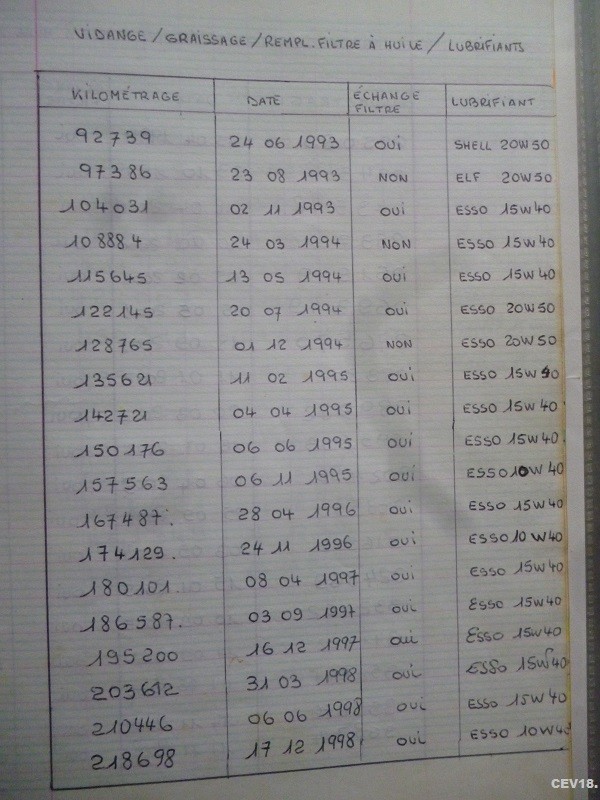 VIDANGE/GRAISSAGE/REMPL.FILTRE À HUILE/LUBRIFIANTS
KILOMÉTRAGE DATE ÉCHANGE FILTRE LUBRIFIANT
92739 24 06 1993 OUI SHELL 20W50
97386 23 08 1993 NON ELF 20W50
104031 02 11 1993 OUI ESSO 15W40
108884 24 03 1994 NON ESSO 15W40
115645 13 05 1994 OUI ESSO 15W40
122145 20 07 1994 OUI ESSO 20W50
128765 01 12 1994 NON ESSO 20W50
135621 11 02 1995 OUI ESSO 15W40
142721 04 04 1995 OUI ESSO 15W40
150176 06 06 1995 OUI ESSO 15W40
157563 06 11 1995 OUI ESSO 10W40
167487. 28 04 1996 OUI ESSO 15W40
174129. 24 11 1996 OUI ESSO 10W40
180101. 08 04 1997 OUI ESSO 15W40
186587. 03 09 1997 OUI ESSO 15W40
195200 16 12 1997 OUI ESSO 15W40
203612 31 03 1998 OUI ESSO 15W40
210446 06 06 1998 OUI ESSO 15W40
218698 17 12 1998 OUI ESSO 10W40
CEV18.